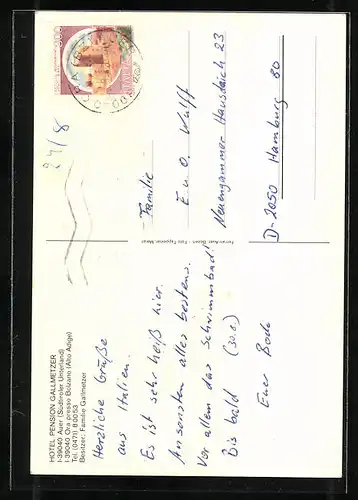 HOTEL PENSION GALLMETZER
I-39040 Auer (Südtiroler Unterland)
I-39040 Ora presso Bolzano (Alto Adige)
Tel. (0471) 80053
Besitzer: Familie Gallmetzer
Herzliche Grüße
aus Italien.
Es ist sehr heiß hier.
Ansonsten alles bestens.
Vor allem das Schwimmbad!
Bis bald (30.8.)
Euer Bodo
24/8
Familie
E. u. O. Wulff
Neuengammer Hausdeich 23
D-2050 Hamburg 80